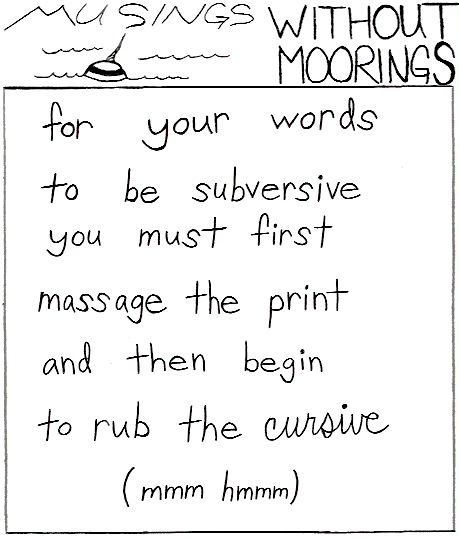 MUSINGS WITHOUT
MOORINGS
for your words
to be subversive
you must first
massage the print
and then begin
to rub the cursive
(mmm hmmm)